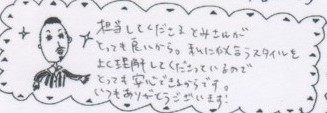 担当してくださるとみさんが
とっても良いから。私に似合うスタイルを
よく理解してくださっているので
とっても安心できるからです。
いつもありがとうございます!